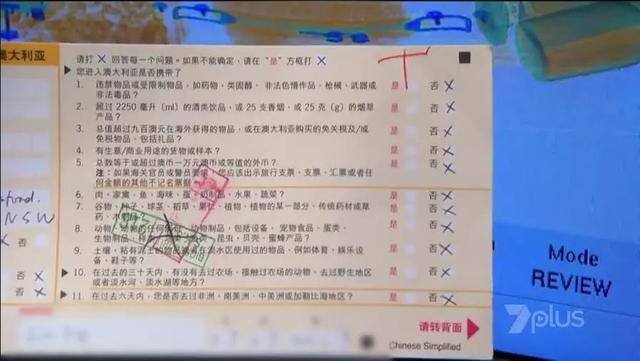 澳大利亚
请打 X 回答每一个问题。如果不能确定，请在“是”方框打 X
您进入澳大利亚是否携带了
1. 违禁物品或受限制物品，如药物、类固醇、非法色情作品、枪械、武器或 是 否 X
非法毒品？
2. 超过 2250 毫升（ml）的酒类饮品，或 25 支香烟，或 25 克（g）的烟草 是 否 X
产品？
3. 总值超过九百澳元在海外获得的物品，或在澳大利亚购买的免关税及/或 是 否 X
免税物品，包括礼品？
4. 有生意/商业用途的货物或样本？ 是 否 X
5. 总数等于或超过澳币一万元澳币或等值的外币？ 是 否 X
注：如果海关官员或警员要求，您应该出示旅行支票、支票、汇票或者任
何金额的其他不记名票据
6. 肉、家禽、鱼、海味、蛋、奶制品、水果、蔬菜？ 是 否 X
7. 谷物、种子、球茎、稻草、果仁、植物、植物的某一部分、传统药材或草 是 否 X
药、木
8. 动物、动物的任何 动物制品，包括设备、宠物食品、蛋类、 是 否 X
生物制品、 昆虫、贝壳、蜜蜂产品？
9. 土壤，粘有泥土的物品 在淡水区使用过的物品，例如体育、娱乐设 是 否 X
备、鞋子等？
10. 在过去的三十天内，有没有去过农场，接触过农场的动物，去过野生地区 是 否 X
或者淡水河、淡水湖等地方？
11. 在过去六天内，您是否去过非洲、南美洲、中美洲或加勒比海地区？ 是 否 X
请转背面
Chinese Simplified
NSW
否 X
Mode
REVIEW
7plus